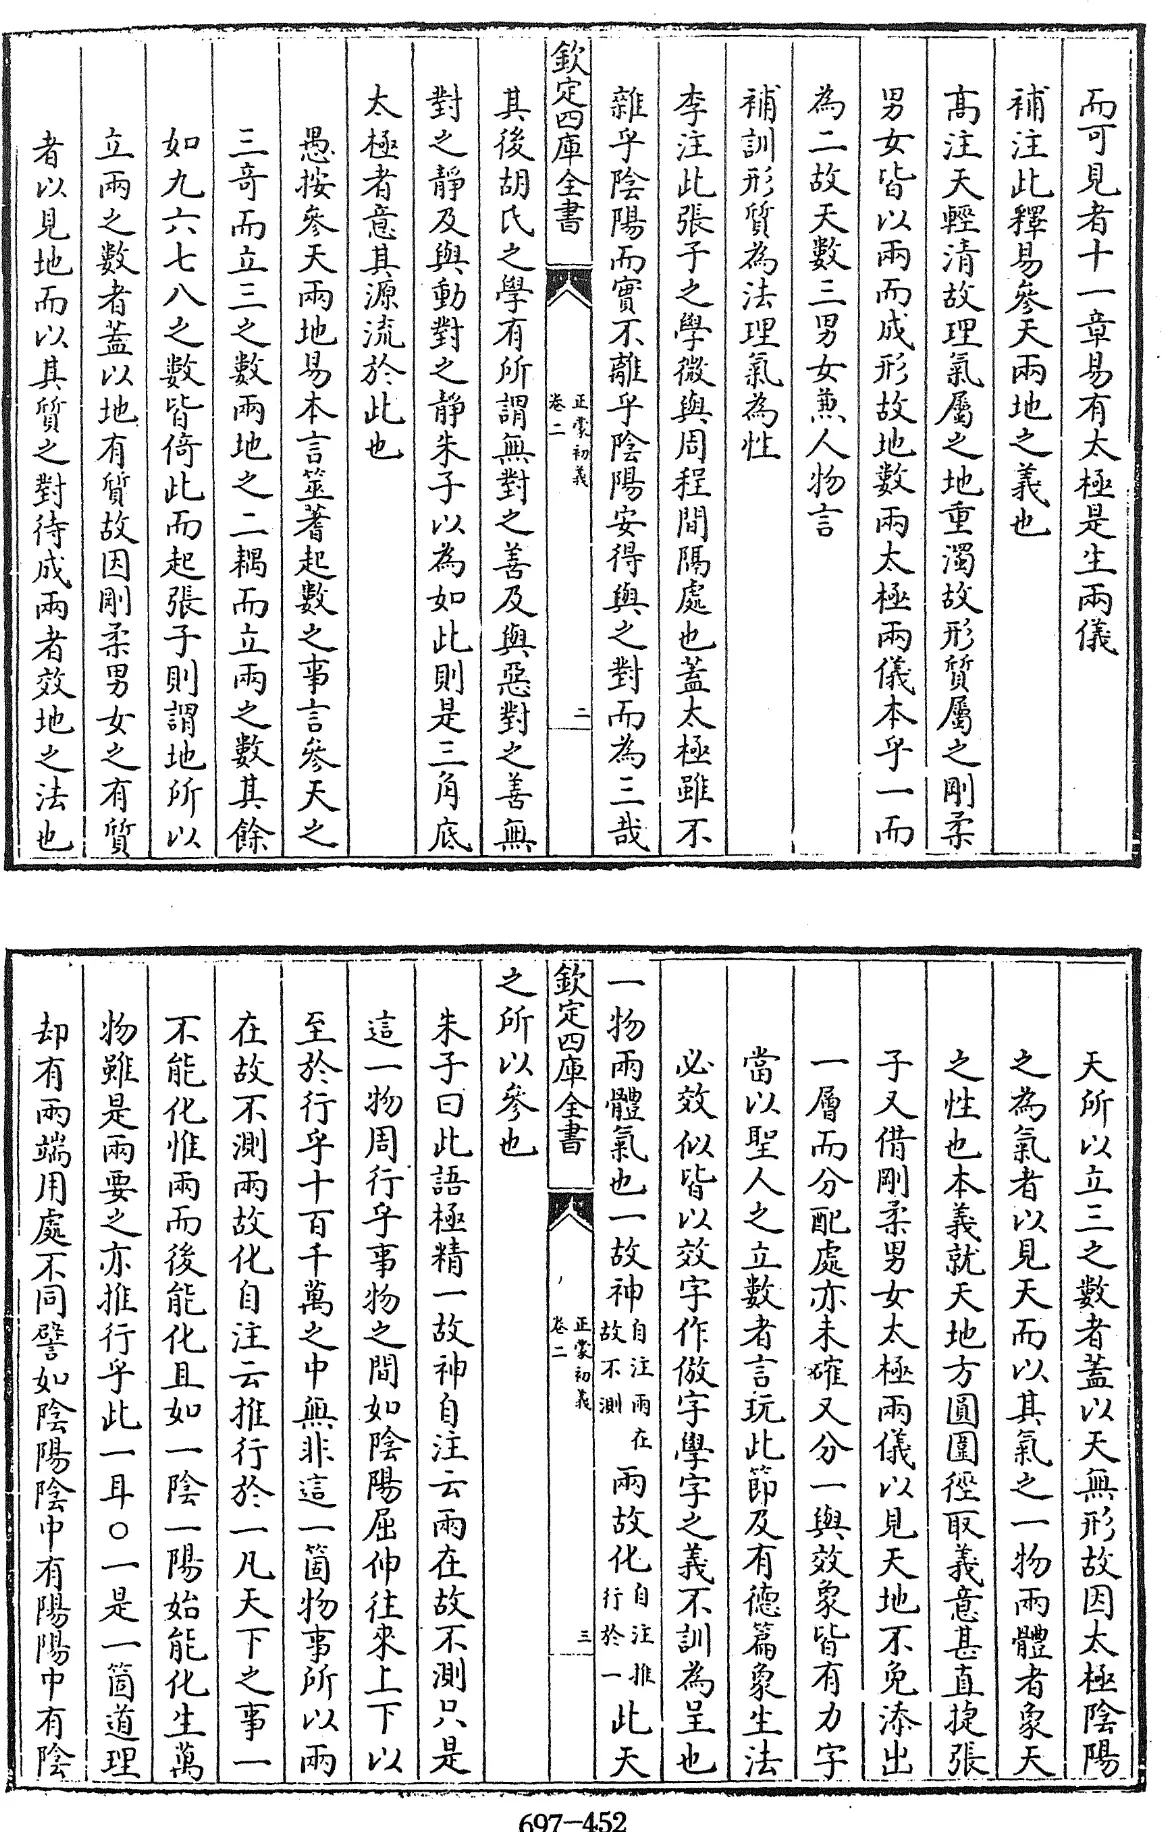 而可見者十一章易有太極是生兩儀
補注此釋易參天兩地之義也
髙注天輕清故理氣屬之地重濁故形質屬之剛柔
男女皆以兩而成形故地數兩太極兩儀本乎一而
為二故天數三男女兼人物言
補訓形質為法理氣為性
李注此張子之學微與周程間隔處也蓋太極雖不
雜乎陰陽而實不離乎陰陽安得與之對而為三哉
欽定四庫全書
正蒙初義
卷二
二
其後胡氏之學有所謂無對之善及與惡對之善無
對之靜及與動對之靜朱子以為如此則是三角底
太極者意其源流於此也
愚按參天兩地易本言筮蓍起數之事言參天之
三奇而立三之數兩地之二耦而立兩之數其餘
如九六七八之數皆倚此而起張子則謂地所以
立兩之數者蓋以地有質故因剛柔男女之有質
者以見地而以其質之對待成兩者效地之法也
天所以立三之數者蓋以天無形故因太極陰陽
之為氣者以見天而以其氣之一物兩體者象天
之性也本義就天地方圓圍徑取義意甚直捷張
子又借剛柔男女太極兩儀以見天地不免添出
一層而分配處亦未確又分一與效象皆有力字
當以聖人之立數者言玩此節及有德篇象生法
必效似皆以效字作倣字學字之義不訓為呈也
一物兩體氣也一故神自注兩在故不測兩故化自注推行於一此天
欽定四庫全書
正蒙初義
卷二
三
之所以參也
朱子曰此語極精一故神自注云兩在故不測只是
這一物周行乎事物之間如陰陽屈伸往來上下以
至於行乎十百千萬之中無非這一箇物事所以兩
在故不測兩故化自注云推行於一凡天下之事一
不能化惟兩而後能化且如一陰一陽始能化生萬
物雖是兩要之亦推行乎此一耳○一是一箇道理
却有兩端用處不同譬如陰陽陰中有陽陽中有陰
697-452